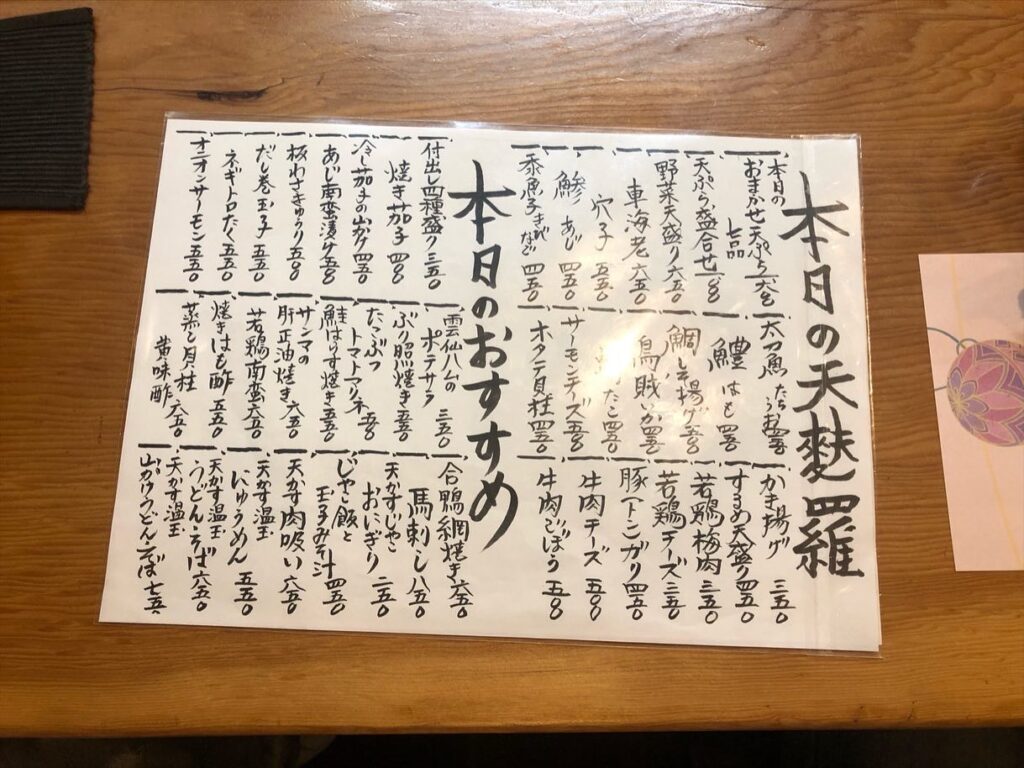 本日の天麩羅
本日の
おまかせ天ぷら
七品
天ぷら盛合せ
野菜天盛り 六五〇
車海老 六五〇
穴子 五五〇
鯵 あじ 四五〇
四五〇
太刀魚 たちうお 四五〇
鱧 はも 四五〇
鯛しそ揚げ 五五〇
烏賊 いか 四五〇
たこ 四五〇
サーモンチーズ 五五〇
ホタテ貝柱 四五〇
かき揚げ 三五〇
するめ天盛り 四五〇
若鶏梅肉 三五〇
若鶏チーズ 三五〇
豚トンガリ 四五〇
牛肉チーズ 五五〇
牛肉ごぼう 五五〇
本日のおすすめ
付出し四種盛り 三五〇
焼き茄子 四〇〇
冷し茄子の山かけ 四五〇
あじ南蛮漬け 五五〇
板わさきゅうり 五五〇
だし巻玉子 五五〇
ネギトロたく 五五〇
オニオンサーモン 五五〇
雲仙ハムの
ポテサラ 三五〇
ぶり照焼き 五五〇
たっぷっ
トマトマリネ 五五〇
鮭はらす焼き 五五〇
サンマの
肝正油焼き 六五〇
若鶏南蛮 六五〇
焼きはも酢 五五〇
蒸し貝柱
黄味酢 六五〇
合鴨網焼き 六五〇
馬刺し 八五〇
天かすじゃこ
おにぎり 二五〇
じゃこ飯と
玉子みそ汁 四五〇
天かす肉吸い 六五〇
天かす温玉
にゅうめん 五五〇
天かす温玉
うどん・そば 六五〇
天かす温玉
山かけうどん・そば 七五〇